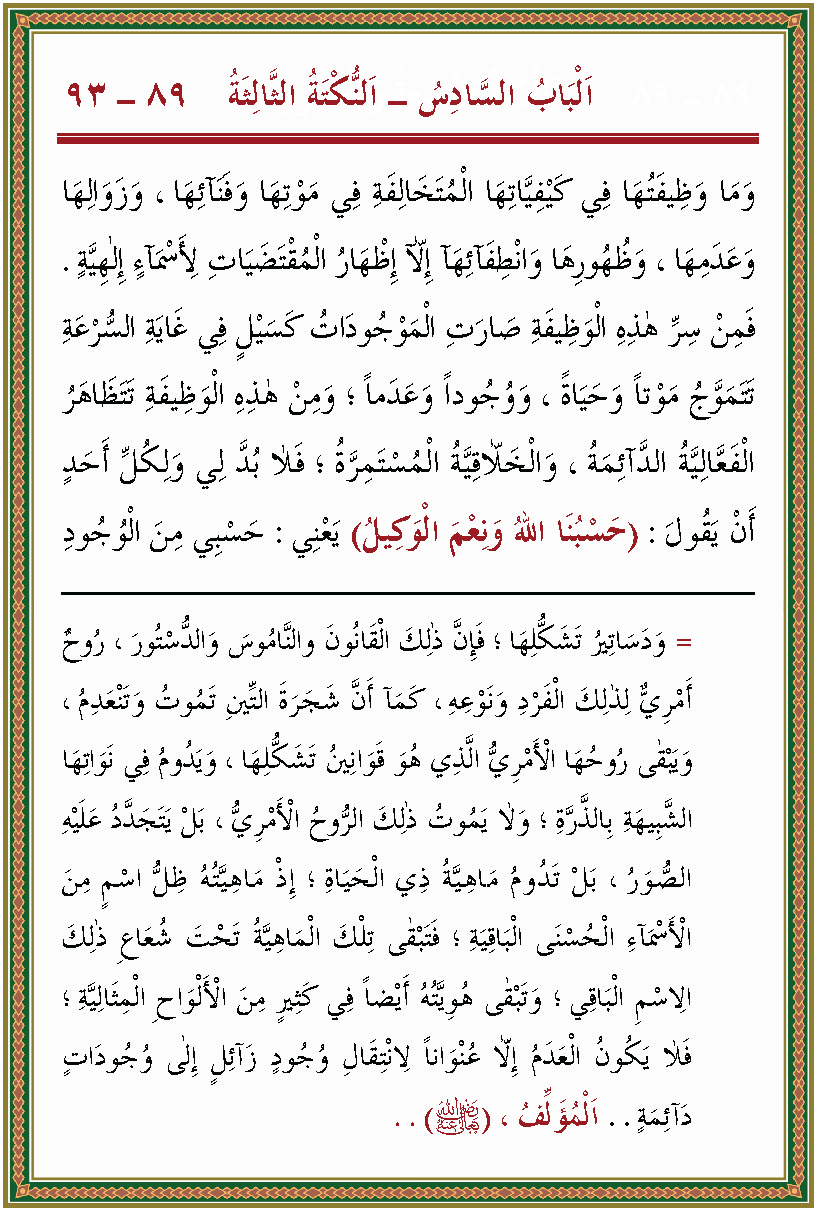 اَلْبَابُ السَّادِسُ ــ اَلنُّكْتَةُ الثَّالِثَةُ ٨٩ ــ ٩٣
وَمَا وَظِيفَتُهَا فِي كَيْفِيَّاتِهَا الْمُتَخَالِفَةِ فِي مَوْتِهَا وَفَنَآئِهَا ، وَزَوَالِهَا
وَعَدَمِهَا ، وَظُهُورِهَا وَانْطِفَآئِهَآ إِلَّآ إِظْهَارُ الْمُقْتَضَيَاتِ لِأَسْمَآءٍ إِلٰهِيَّةٍ .
فَمِنْ سِرِّ هٰذِهِ الْوَظِيفَةِ صَارَتِ الْمَوْجُودَاتُ كَسَيْلٍ فِي غَايَةِ السُّرْعَةِ
تَتَمَوَّجُ مَوْتاً وَحَيَاةً ، وَوُجُوداً وَعَدَماً ؛ وَمِنْ هٰذِهِ الْوَظِيفَةِ تَتَظَاهَرُ
الْفَعَّالِيَّةُ الدَّآئِمَةُ ، وَالْخَلَّاقِيَّةُ الْمُسْتَمِرَّةُ ؛ فَلَا بُدَّ لِي وَلِكُلِّ أَحَدٍ
أَنْ يَقُولَ : (حَسْبُنَا اللهُ وَنِعْمَ الْوَكِيلُ) يَعْنِي : حَسْبِي مِنَ الْوُجُودِ
= وَدَسَاتِيرُ تَشَكُّلِهَا ؛ فَإِنَّ ذٰلِكَ الْقَانُونَ وَالنَّامُوسَ وَالدُّسْتُورَ ، رُوحٌ
أَمْرِيٌّ لِذٰلِكَ الْفَرْدِ وَنَوْعِهِ ، كَمَآ أَنَّ شَجَرَةَ التِّينِ تَمُوتُ وَتَنْعَدِمُ ،
وَيَبْقٰى رُوحُهَا الْأَمْرِيُّ الَّذِي هُوَ قَوَانِينُ تَشَكُّلِهَا ، وَيَدُومُ فِي نَوَاتِهَا
الشَّبِيهَةِ بِالذَّرَّةِ ؛ وَلَا يَمُوتُ ذٰلِكَ الرُّوحُ الْأَمْرِيُّ ، بَلْ يَتَجَدَّدُ عَلَيْهِ
الصُّوَرُ ، بَلْ تَدُومُ مَاهِيَّةُ ذِي الْحَيَاةِ ؛ إِذْ مَاهِيَّتُهُ ظِلُّ اسْمٍ مِنَ
الْأَسْمَآءِ الْحُسْنَى الْبَاقِيَةِ ؛ فَتَبْقٰى تِلْكَ الْمَاهِيَّةُ تَحْتَ شُعَاعِ ذٰلِكَ
الِاسْمِ الْبَاقِي ؛ وَتَبْقٰى هُوِيَّتُهُ أَيْضاً فِي كَثِيرٍ مِنَ الْأَلْوَاحِ الْمِثَالِيَّةِ ؛
فَلَا يَكُونُ الْعَدَمُ إِلَّا عُنْوَاناً لِانْتِقَالِ وُجُودٍ زَآئِلٍ إِلٰى وُجُودَاتٍ
دَآئِمَةٍ . . اَلْمُؤَلِّفُ ، (رضي الله تعالى عنه) . .